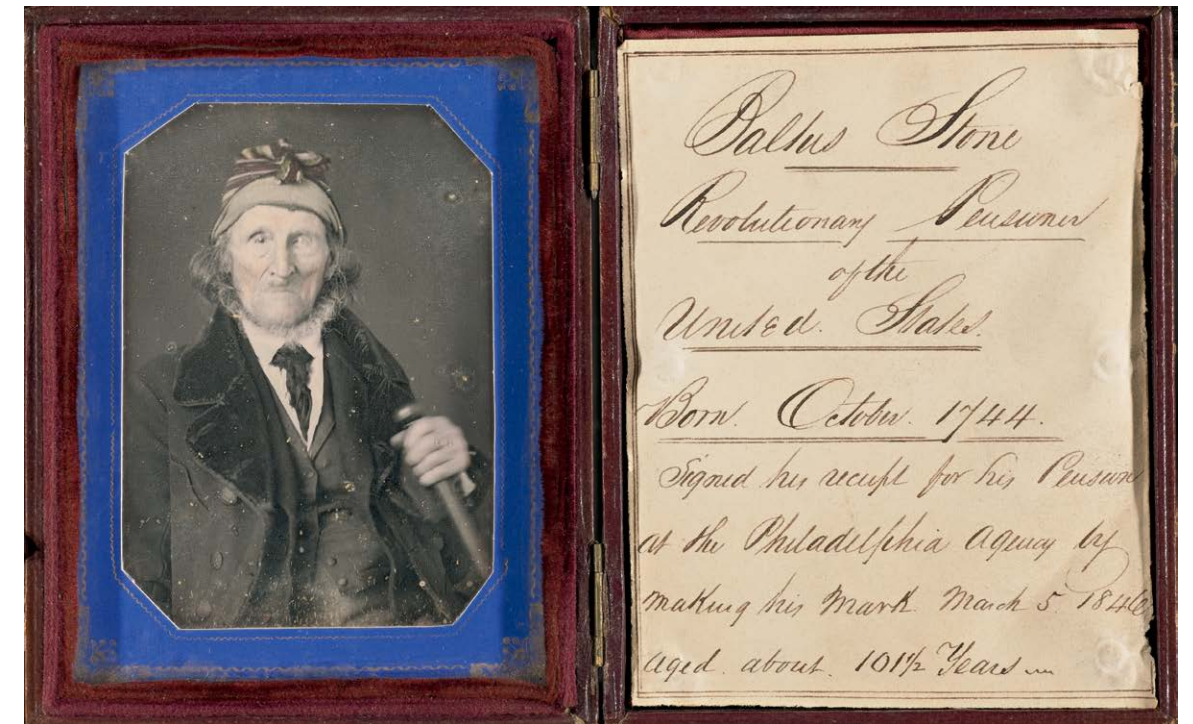 Baltus Stone
Revolutionary Pensioner
of the
United. States.
Born. October. 1744.
Signed his receipt for his Pension
at the Philadelphia Agency by
making his Mark March 5. 1846
aged about. 101½ Years